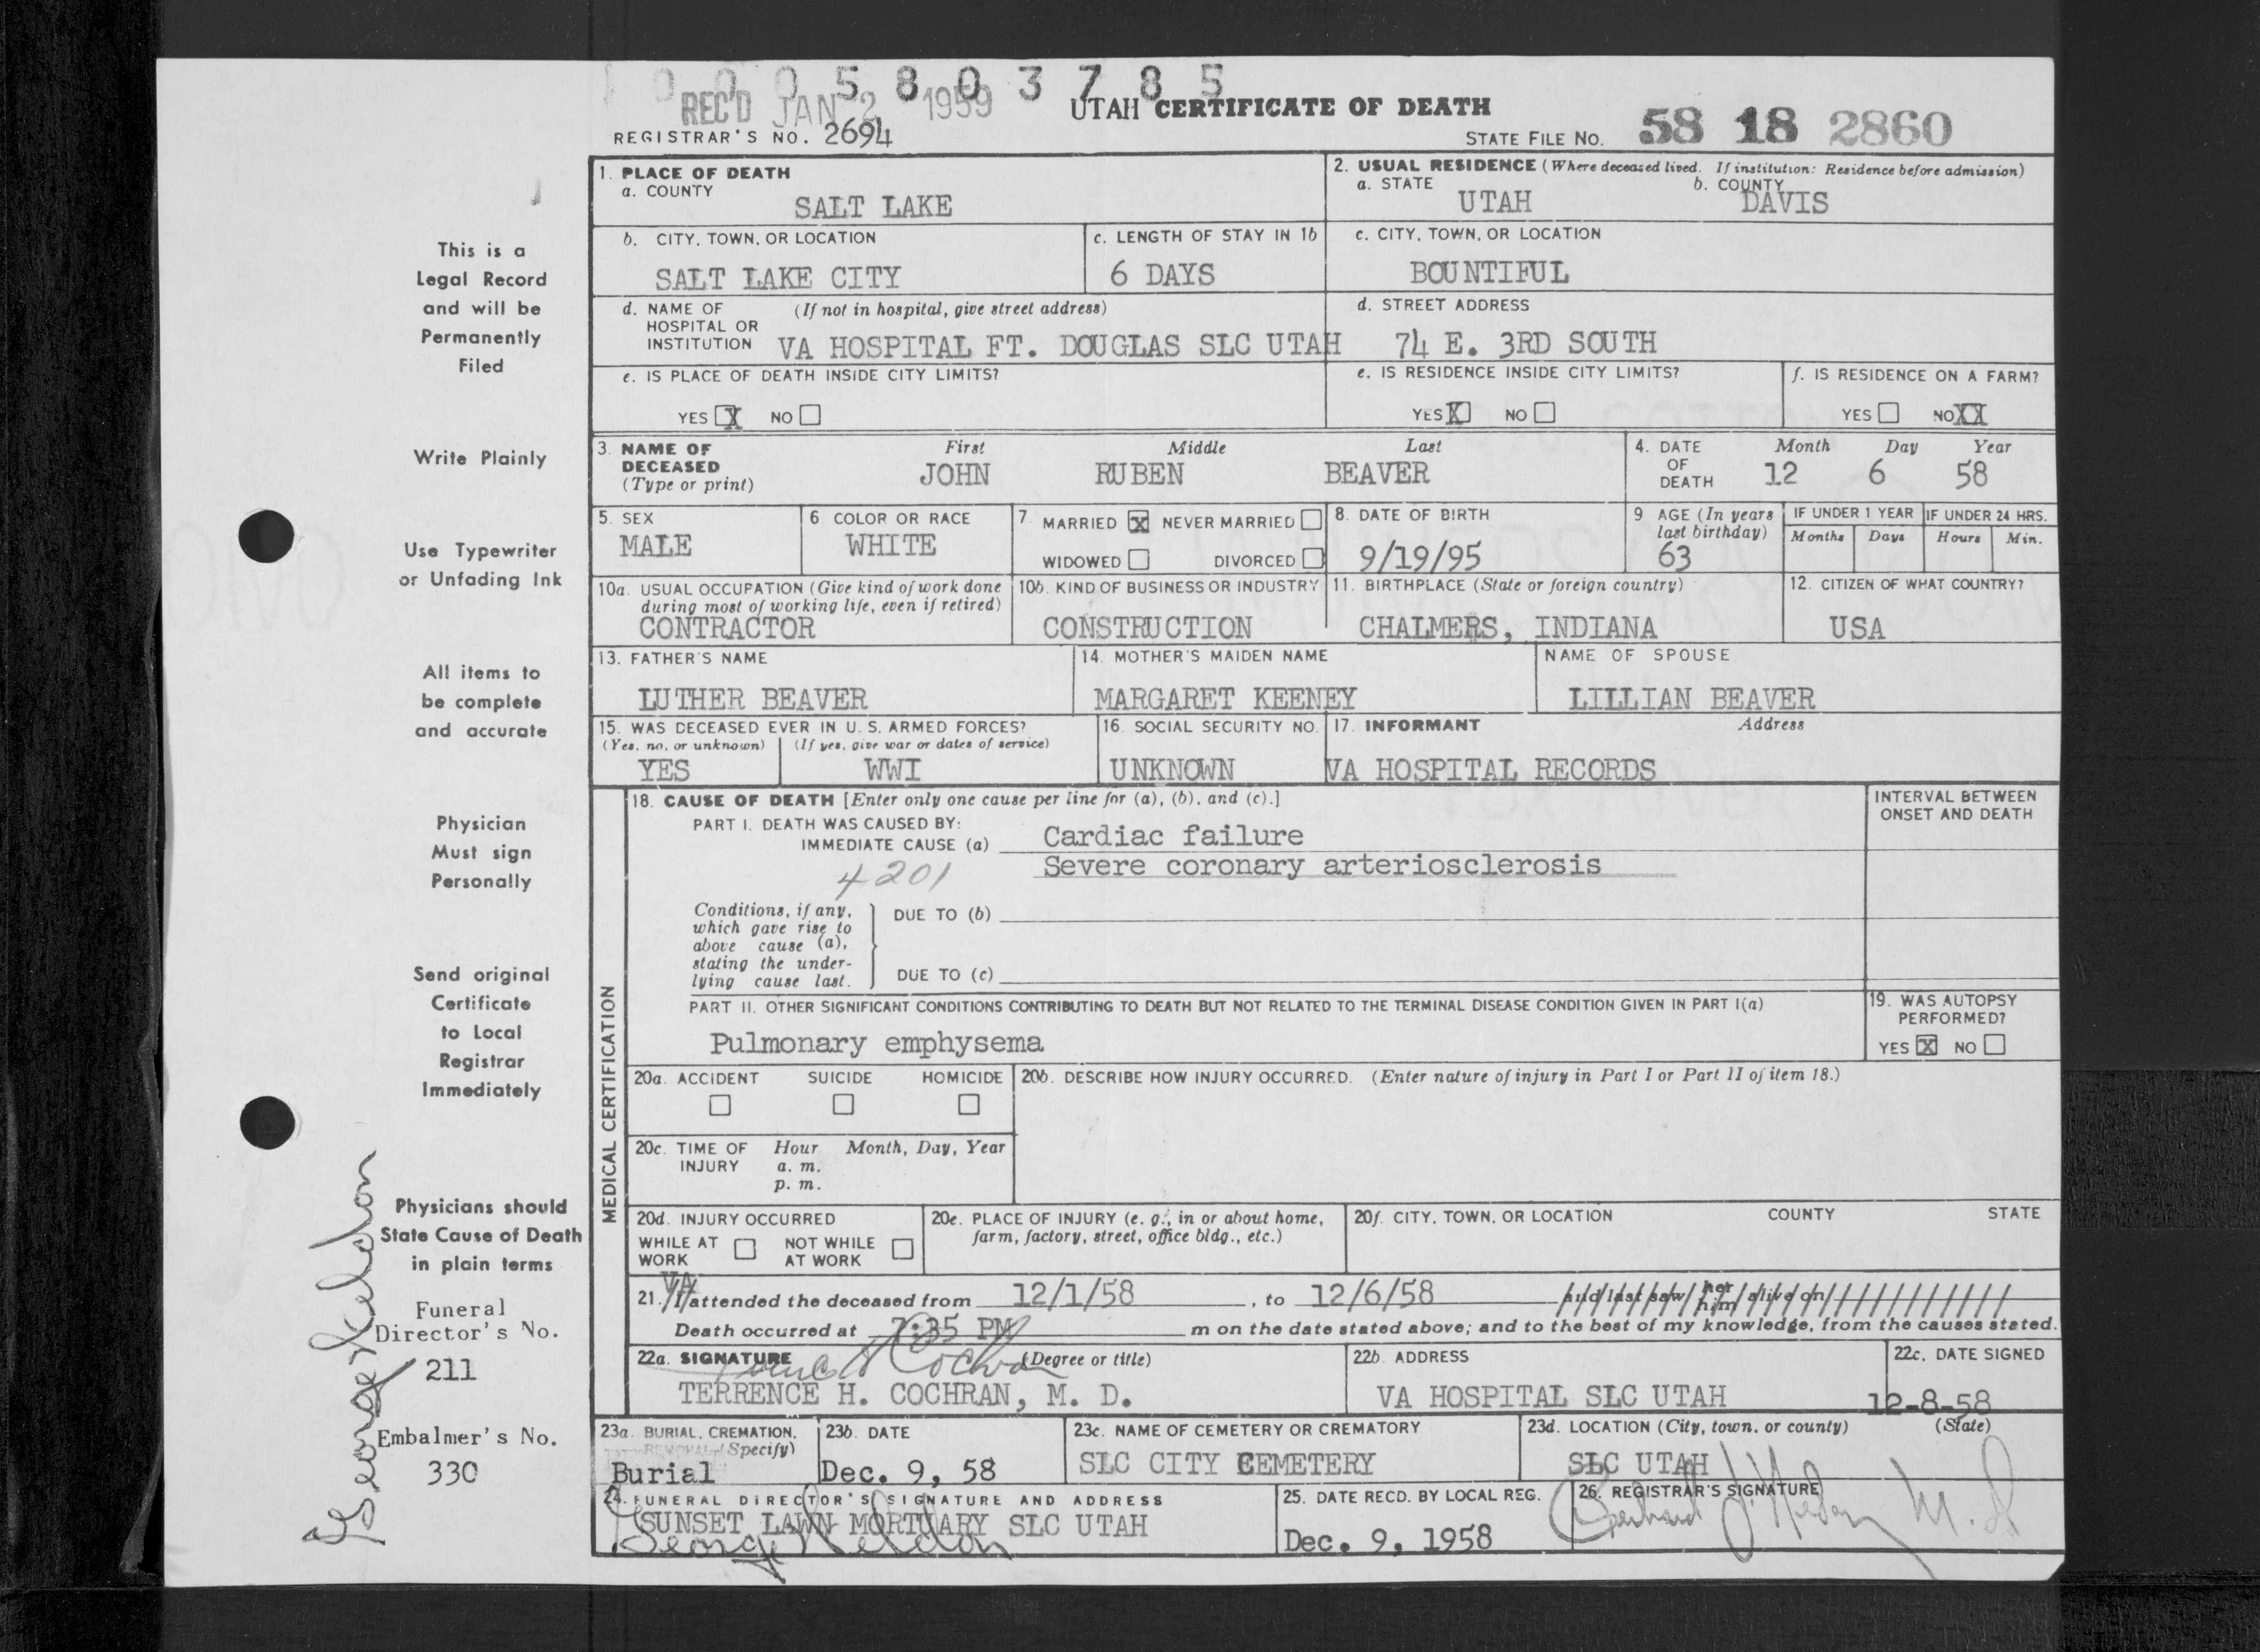 0 0 0 5 8 0 3 7 8 5
REC'D JAN 2 1959
UTAH CERTIFICATE OF DEATH
REGISTRAR'S NO. 2694
STATE FILE NO. 58 18 2860
1. PLACE OF DEATH
a. COUNTY
SALT LAKE
2. USUAL RESIDENCE (Where deceased lived. If institution: Residence before admission)
a. STATE b. COUNTY
UTAH DAVIS
b. CITY, TOWN, OR LOCATION
SALT LAKE CITY
c. LENGTH OF STAY IN 1b
6 DAYS
c. CITY, TOWN, OR LOCATION
BOUNTIFUL
d. NAME OF (If not in hospital, give street address)
HOSPITAL OR
INSTITUTION VA HOSPITAL FT. DOUGLAS SLC UTAH
d. STREET ADDRESS
74 E. 3RD SOUTH
e. IS PLACE OF DEATH INSIDE CITY LIMITS?
YES X NO
e. IS RESIDENCE INSIDE CITY LIMITS?
YES X NO
f. IS RESIDENCE ON A FARM?
YES NO XX
3. NAME OF First Middle Last
DECEASED
(Type or print) JOHN RUBEN BEAVER
4. DATE Month Day Year
OF
DEATH 12 6 58
5. SEX
MALE
6. COLOR OR RACE
WHITE
7. MARRIED X NEVER MARRIED
WIDOWED DIVORCED
8. DATE OF BIRTH
9/19/95
9 AGE (In years
last birthday)
63
IF UNDER 1 YEAR IF UNDER 24 HRS.
Months Days Hours Min.
10a. USUAL OCCUPATION (Give kind of work done
during most of working life, even if retired)
CONTRACTOR
10b. KIND OF BUSINESS OR INDUSTRY
CONSTRUCTION
11. BIRTHPLACE (State or foreign country)
CHALMERS, INDIANA
12. CITIZEN OF WHAT COUNTRY?
USA
13. FATHER'S NAME
LUTHER BEAVER
14. MOTHER'S MAIDEN NAME
MARGARET KEENEY
NAME OF SPOUSE
LILLIAN BEAVER
15. WAS DECEASED EVER IN U. S. ARMED FORCES?
(Yes, no, or unknown) (If yes, give war or dates of service)
YES WWI
16. SOCIAL SECURITY NO.
UNKNOWN
17. INFORMANT Address
VA HOSPITAL RECORDS
MEDICAL CERTIFICATION
18. CAUSE OF DEATH [Enter only one cause per line for (a), (b), and (c).]
INTERVAL BETWEEN
ONSET AND DEATH
PART I. DEATH WAS CAUSED BY:
IMMEDIATE CAUSE (a) Cardiac failure
Severe coronary arteriosclerosis
4201
Conditions, if any,
which gave rise to
above cause (a),
stating the under-
lying cause last.
DUE TO (b)
DUE TO (c)
PART II. OTHER SIGNIFICANT CONDITIONS CONTRIBUTING TO DEATH BUT NOT RELATED TO THE TERMINAL DISEASE CONDITION GIVEN IN PART I(a)
Pulmonary emphysema
19. WAS AUTOPSY
PERFORMED?
YES X NO
20a. ACCIDENT SUICIDE HOMICIDE
20b. DESCRIBE HOW INJURY OCCURRED. (Enter nature of injury in Part I or Part II of item 18.)
20c. TIME OF Hour Month, Day, Year
INJURY a. m.
p. m.
20d. INJURY OCCURRED
WHILE AT NOT WHILE
WORK AT WORK
20e. PLACE OF INJURY (e. g., in or about home,
farm, factory, street, office bldg., etc.)
20f. CITY, TOWN, OR LOCATION COUNTY STATE
VA
21. I attended the deceased from 12/1/58, to 12/6/58 and last saw her him alive on
Death occurred at 7:35 PM m on the date stated above; and to the best of my knowledge, from the causes stated.
22a. SIGNATURE (Degree or title)
TERRENCE H. COCHRAN, M. D.
22b. ADDRESS
VA HOSPITAL SLC UTAH
22c. DATE SIGNED
12-8-58
23a. BURIAL, CREMATION,
REMOVAL (Specify)
Burial
23b. DATE
Dec. 9, 58
23c. NAME OF CEMETERY OR CREMATORY
SLC CITY CEMETERY
23d. LOCATION (City, town, or county) (State)
SLC UTAH
24. FUNERAL DIRECTOR'S SIGNATURE AND ADDRESS
SUNSET LAWN MORTUARY SLC UTAH
25. DATE RECD. BY LOCAL REG.
Dec. 9, 1958
26. REGISTRAR'S SIGNATURE
This is a
Legal Record
and will be
Permanently
Filed
Write Plainly
Use Typewriter
or Unfading Ink
All items to
be complete
and accurate
Physician
Must sign
Personally
Send original
Certificate
to Local
Registrar
Immediately
Physicians should
State Cause of Death
in plain terms
Funeral
Director's No.
211
Embalmer's No.
330